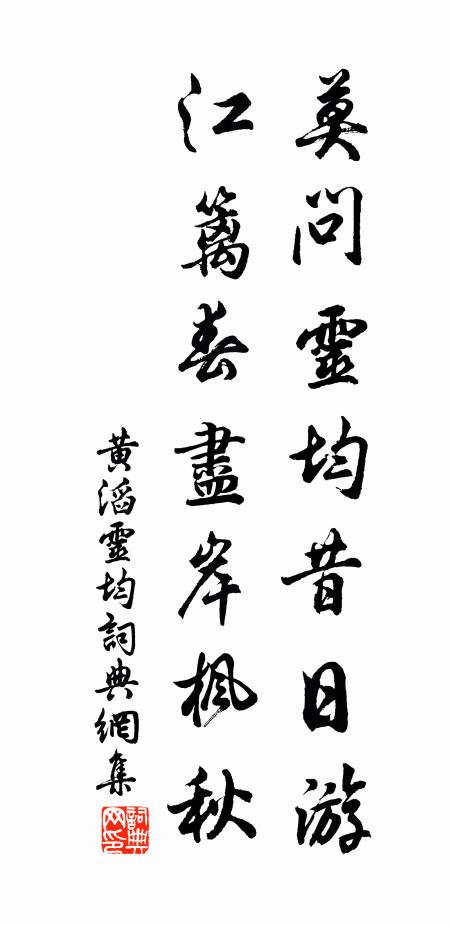 莫問靈均昔日游
江蓠春盡岸楓秋
黄滔靈均詞典網集
詞典网印